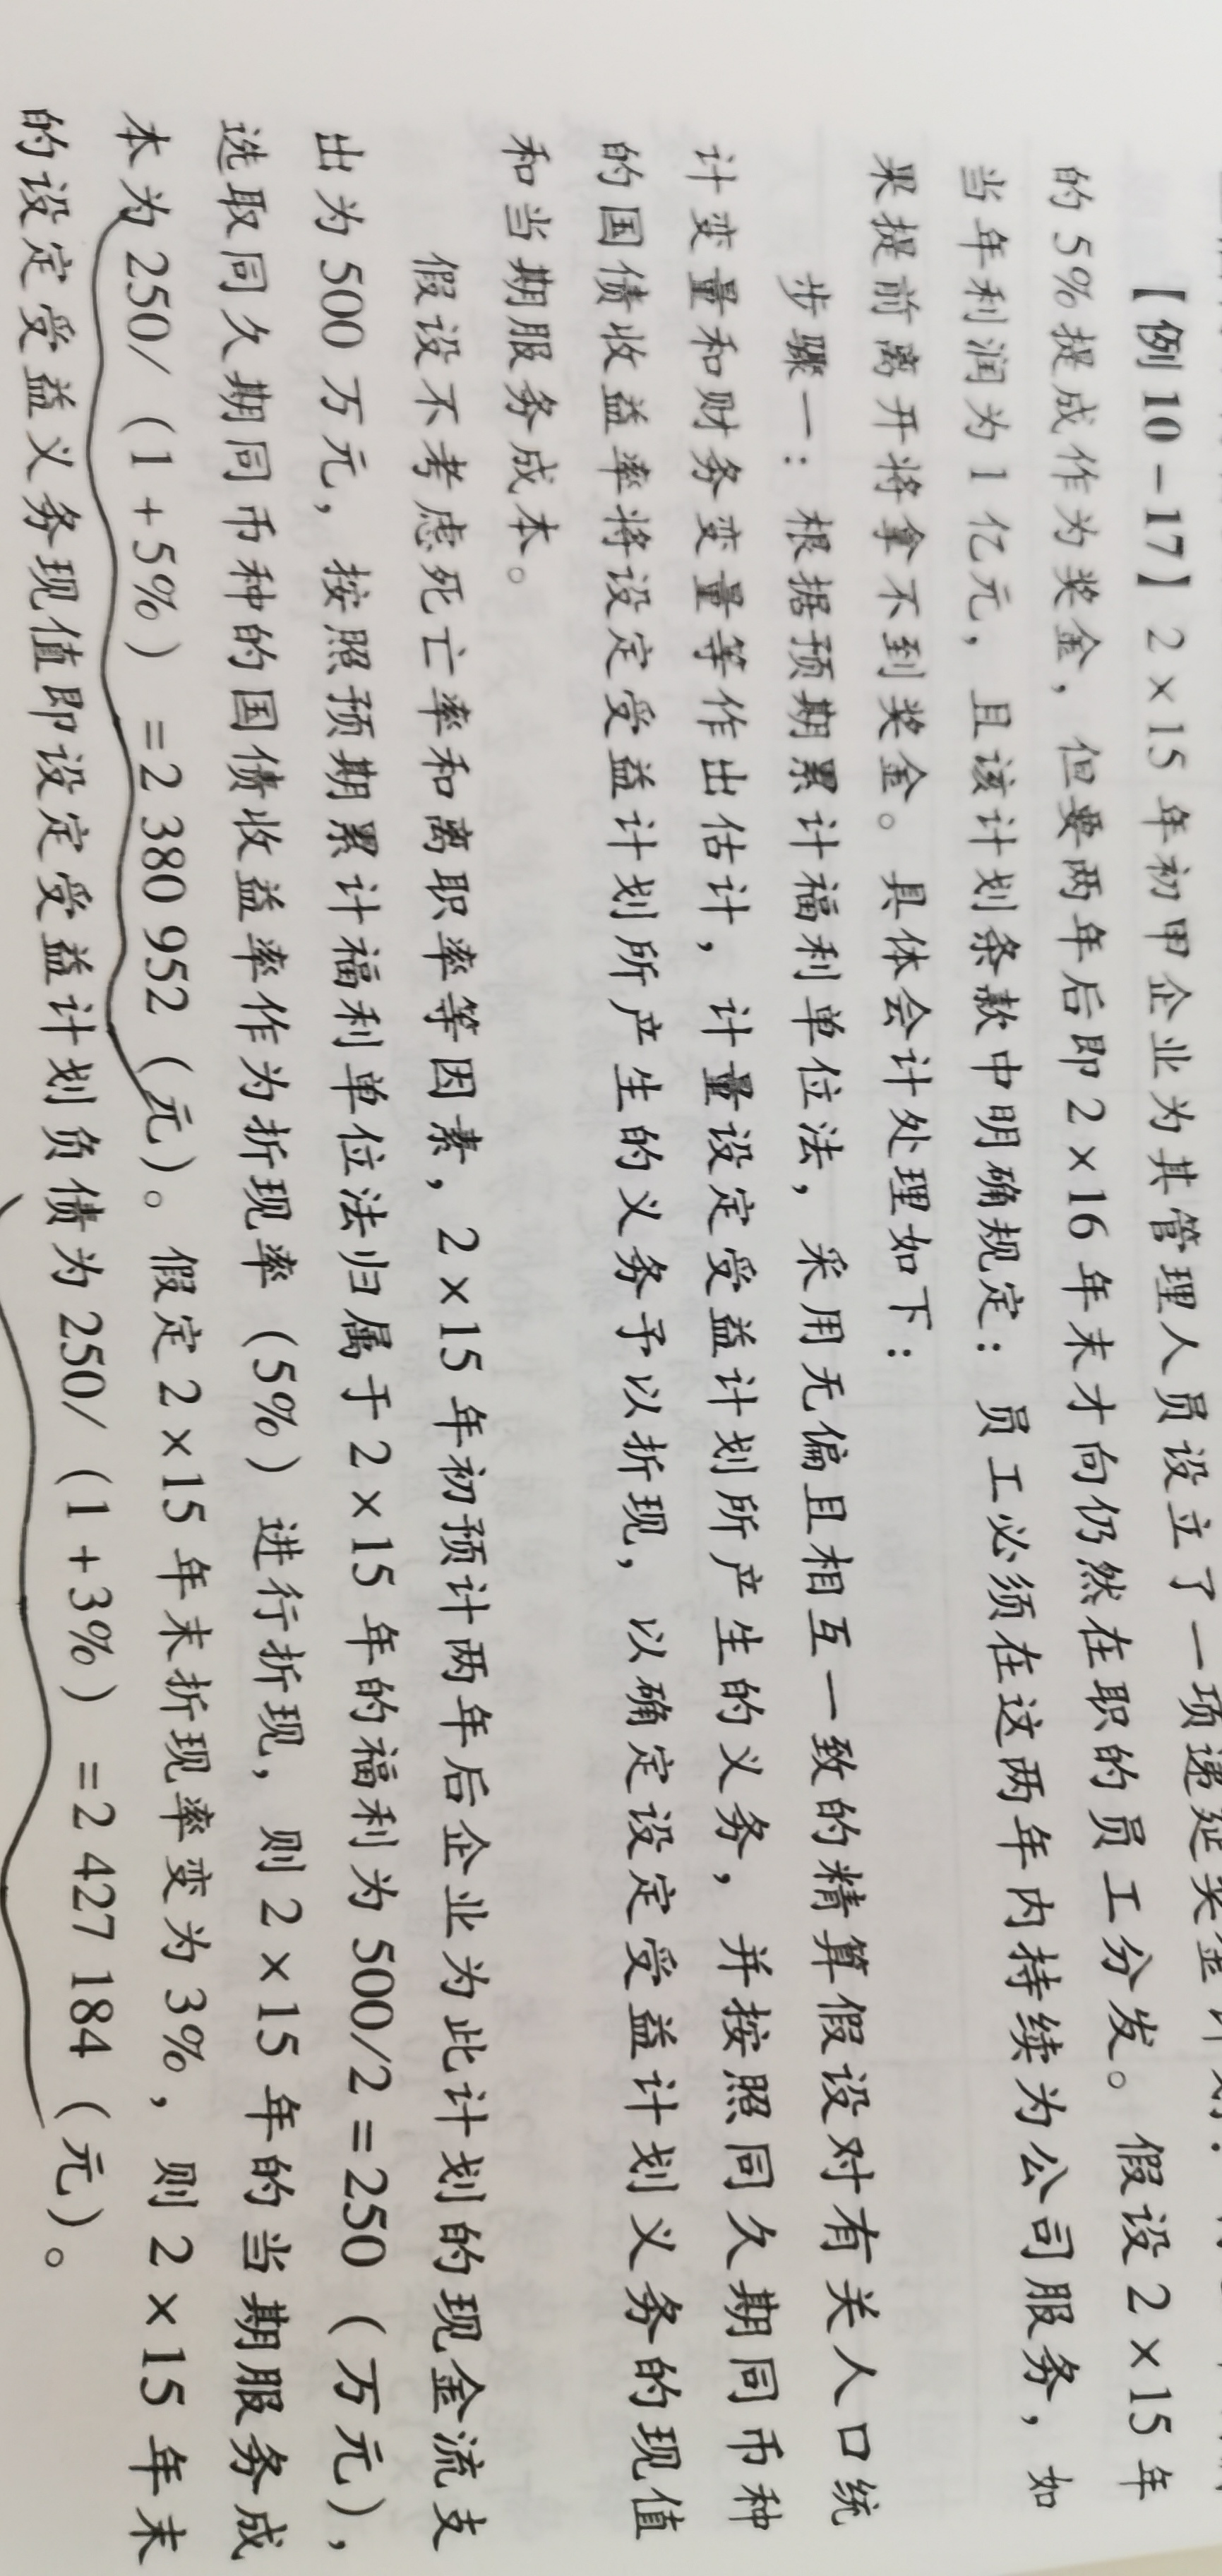 【例10－17】2×15年初甲企业为其管理人员设立了一项递延奖金计划：
的5%提成作为奖金，但要两年后即2×16年末才向仍然在职的员工分发。假设2×15年
当年利润为1亿元，且该计划条款中明确规定：员工必须在这两年内持续为公司服务，如
果提前离开将拿不到奖金。具体会计处理如下：
步骤一：根据预期累计福利单位法，采用无偏且相互一致的精算假设对有关人口统
计变量和财务变量等作出估计，计量设定受益计划所产生的义务，并按照同久期同币种
的国债收益率将设定受益计划所产生的义务予以折现，以确定设定受益计划义务的现值
和当期服务成本。
假设不考虑死亡率和离职率等因素，2×15年初预计两年后企业为此计划的现金流支
出为500万元，按照预期累计福利单位法归属于2×15年的福利为500/2＝250（万元），
选取同久期同币种的国债收益率作为折现率（5%）进行折现，则2×15年的当期服务成
本为250/（1＋5%）＝2 380 952（元）。假定2×15年末折现率变为3%，则2×15年末
的设定受益义务现值即设定受益计划负债为250/（1＋3%）＝2 427 184（元）。